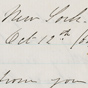 New York.
Oct 12th
from you